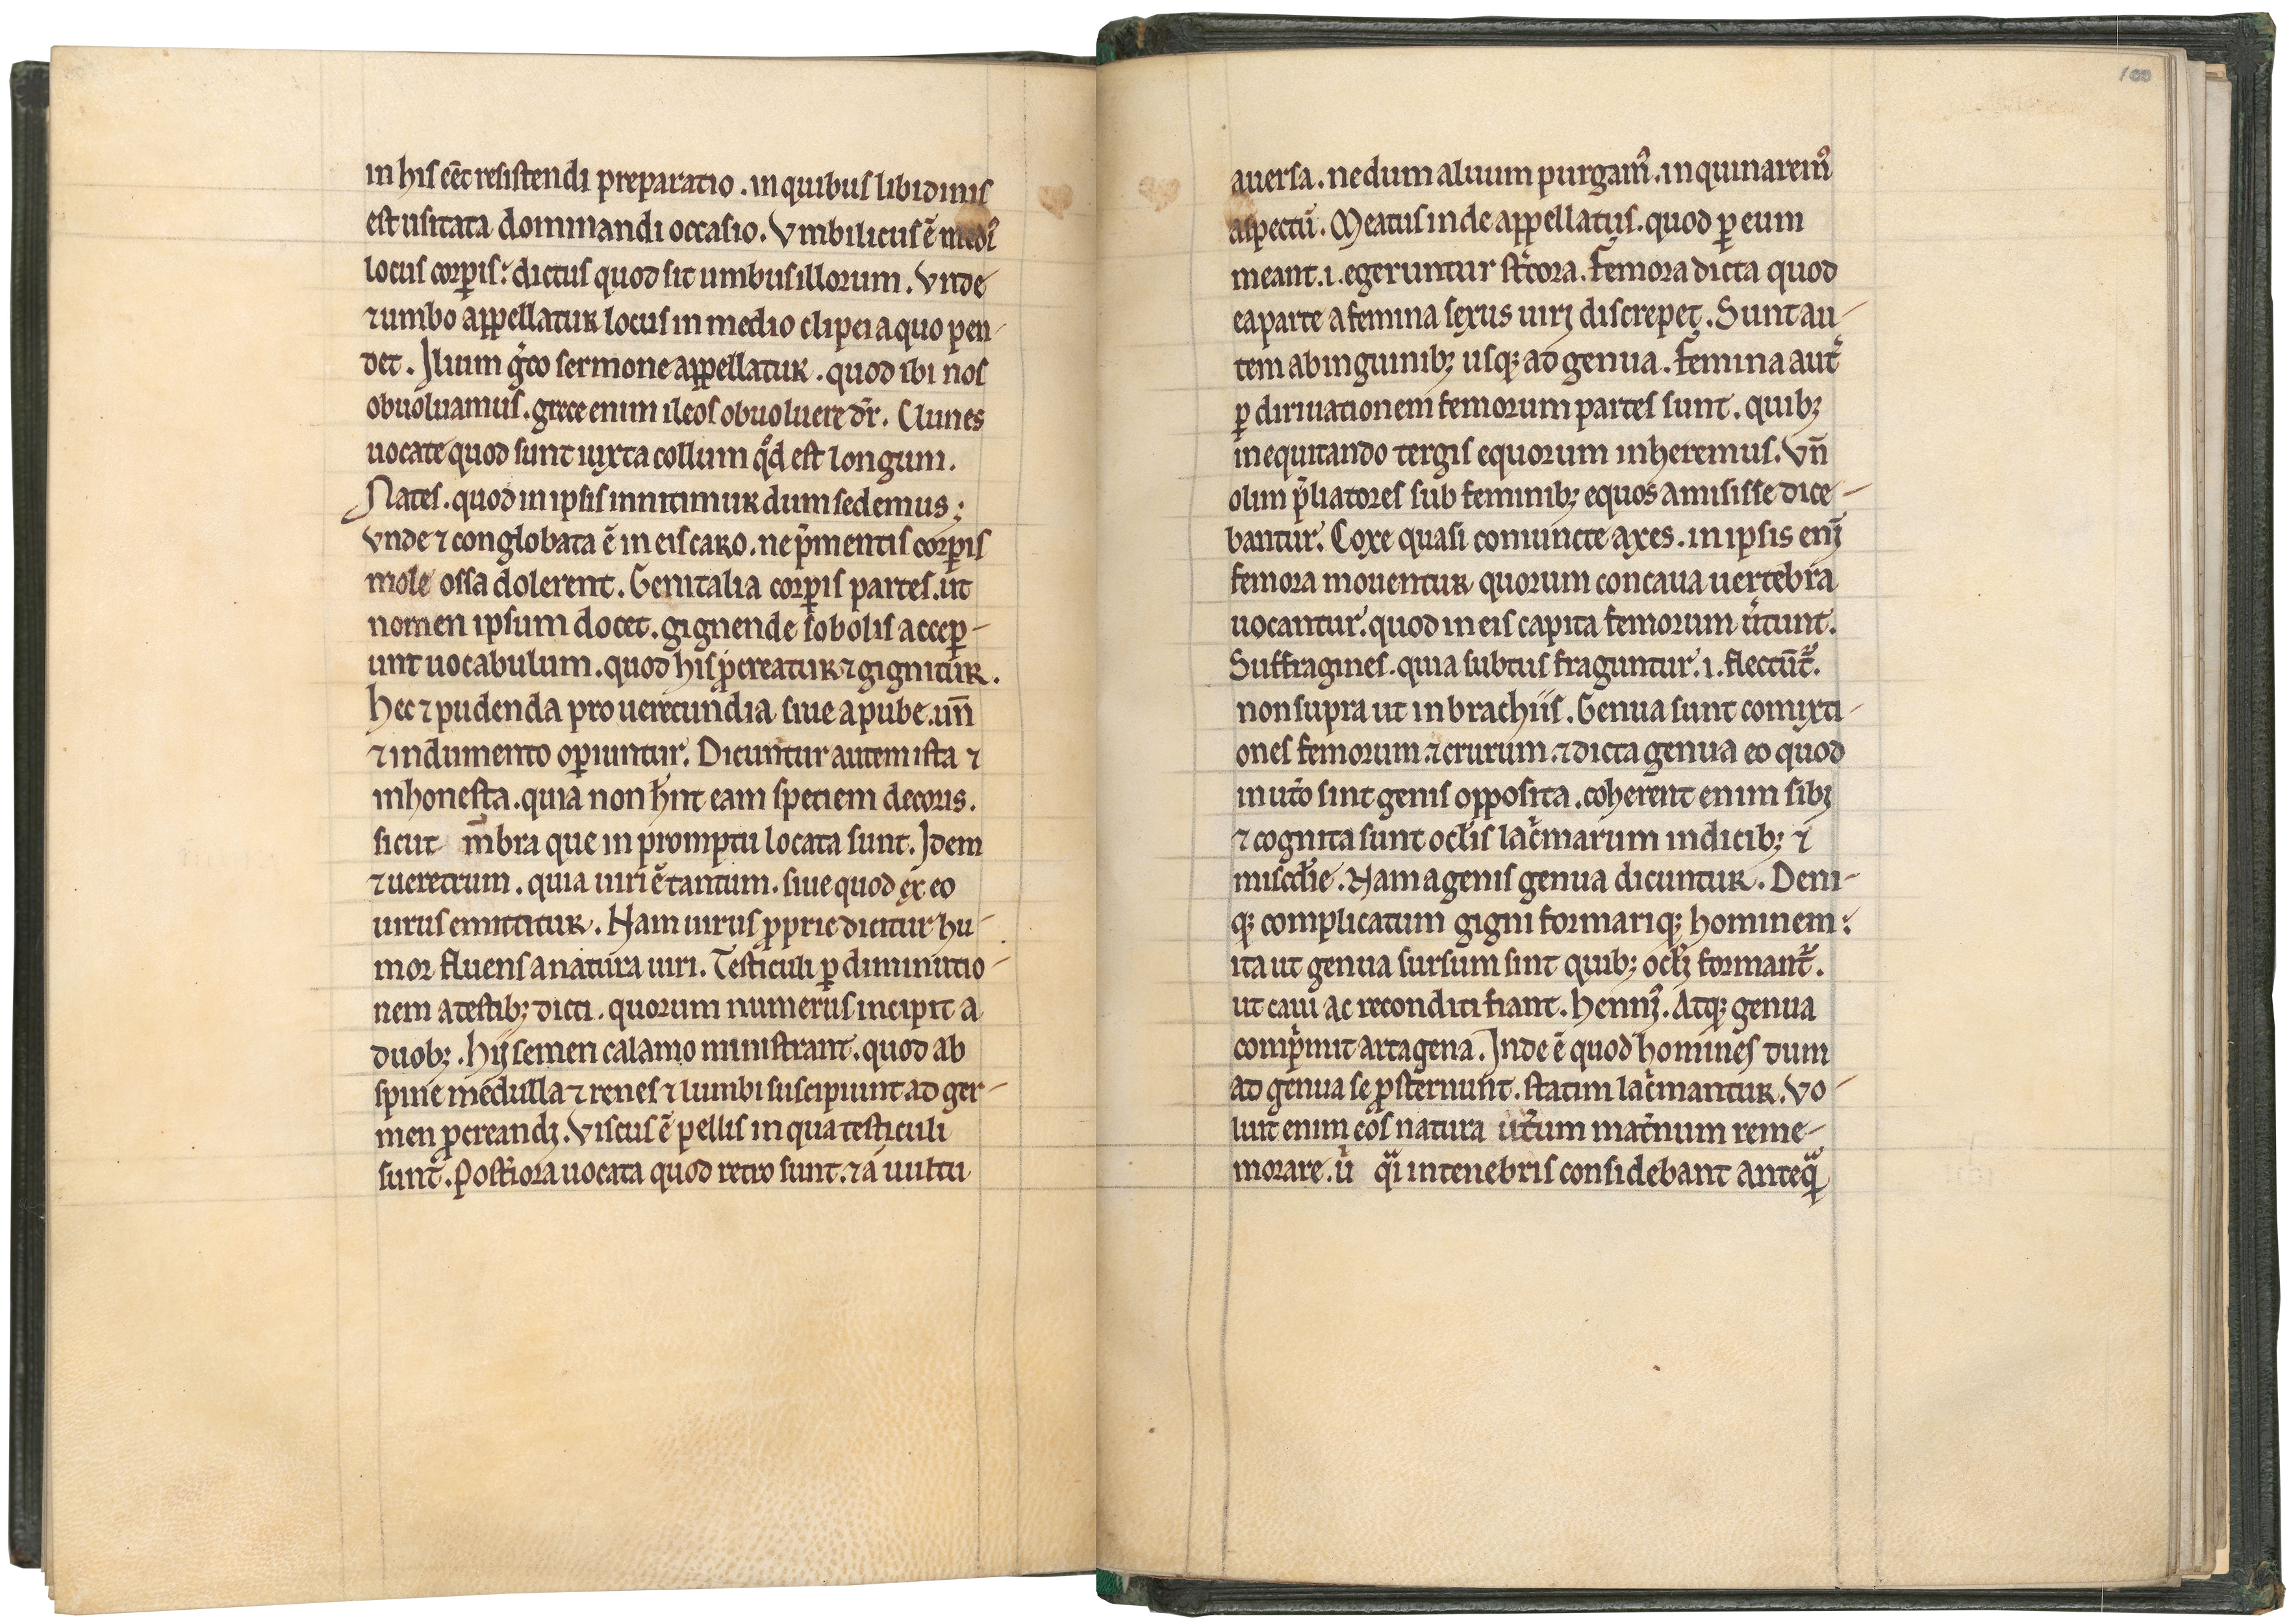 in his eēt resistendi preparatio . in quibus libidinis
est usitata dominandi occasio . Vmbilicus ē medi᷒
locus corꝑis : dictus quod sit umbus illorum . Vnde
⁊ umbo appellatur locus in medio clipei a quo pen-
det . Ilium g̊co sermone appellatur . quod ibi nos
obuoluamus . grece enim ileos obuoluere dr̄ . Clunes
uocate quod sunt iuxta collum qd̓ est longum .
Nates . quod in ipsis innitimur dum sedemus ;
Vnde ⁊ conglobata ē in eis caro . ne p̄mentis corꝑis
mole ossa dolerent . Genitalia corꝑis partes . ut
nomen ipsum docet . gignende sobolis acceꝑ-
unt uocabulum . quod his ꝓcreatur ⁊ gignitur .
hec ⁊ pudenda pro uerecundia siue a pube . un̄
⁊ indumento oꝑiuntur . Dicuntur autem ista ⁊
inhonesta . quia non hn̄t eam speciem decoris .
sicut m̄bra que in promptu locata sunt . Idem
⁊ ueretrum . quia uiri ē tantum . siue quod ex eo
uirus emittitur . Nam uirus ꝓprie dicitur hu-
mor fluens a natura uiri . Testiculi ꝑ diminutio-
nem a testibꝫ dicti . quorum numerus incipit a
duobꝫ . hij semen calamo ministrant . quod ab
spine medulla ⁊ renes ⁊ lumbi suscipiunt ad ger-
men ꝓcreandj . Viscus ē pellis in qua testiculi
sunt . Post̓iora uocata quod retro sunt . ⁊ a uultu
100
auersa . ne dum aluum purgam᷒ . inquinarem᷒
aspectū . Meatus inde appellatus . quod ꝑ eum
meant .i. egeruntur st̓cora . Femora dicta quod
ea parte a femina sexus uirj discrepet . Sunt au-
tem ab inguinibꝫ usqꝫ ad genua . Femina aut̓
ꝑ diriuationem femorum partes sunt . quibꝫ
in equitando tergis equorum inheremus . Vn̄
olim p̄liatores sub feminibꝫ equos amisisse dice-
bantur . Coxe quasi coniuncte axes . in ipsis enī
femora mouentur quorum concaua uertebra
uocantur . quod in eis capita femorum u̓tunt .
Suffragines . quia subtus fraguntur .i. flectūt᷑ .
non supra ut in brachiis . Genua sunt comixti-
ones femorum ⁊ crurum . ⁊ dicta genua eo quod
in ut̓o sint genis opposita . coherent enim sibj
⁊ cognita sunt oclis̄ lac̓marum indicibꝫ ⁊
misc̄die . Nam a genis genua dicuntur . Deni-
qꝫ complicatum gigni formariqꝫ hominem :
ita ut genua sursum sint quibꝫ oclj̄ formant᷑ .
ut caui ac reconditi fiant . henni᷒ . Atqꝫ genua
comp̓mit arta gena . Inde ē quod homines dum
ad genua se ꝓsternunt . statim lac̓mantur . Vo-
luit enim eos natura ut̓um mat̓num reme-
morare . u̓ qᷓi in tenebris considebant anteqᷓ